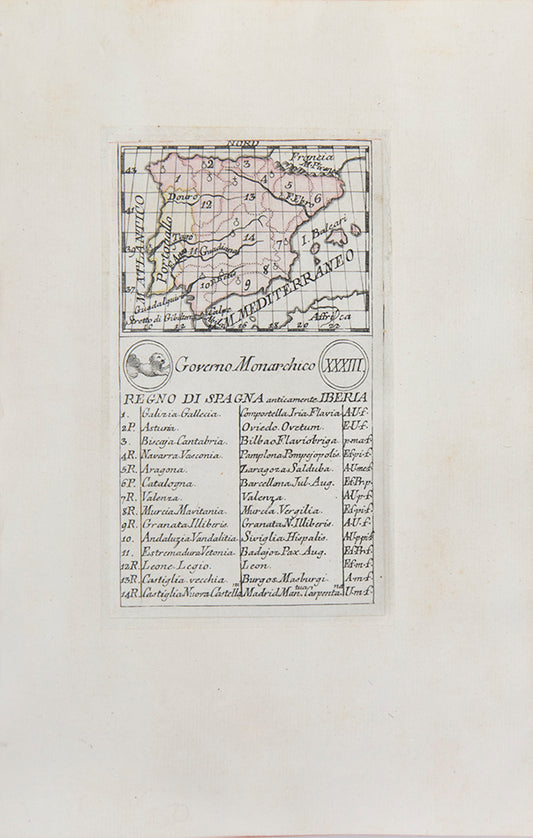 NORD
Francia
M. Pirenei
43
1
2
3
3
4
5
6
Douro
12
13
F. Ebro
41
M. ATTLANTICO
Portogallo
I. Baleari
39
Tago
11 Guadiana
14
7
10
8
9
37
Guadalquivir
Stretto di Gibilterra
M. MEDITERRANEO
Affrica
16
20
22
Governo Monarchico XXXIII.
REGNO DI SPAGNA anticamente IBERIA
1. Galizia Gallecia. Compostella Iria Flavia A·U·f.
2P. Asturia. Oviedo Ovetum. E·U·f.
3. Biscaja Cantabria. Bilbao Flaviobriga. p·m·a·f.
4R. Navarra Vasconia. Pamplona Pompejopolis. E·f·pi·f.
5R. Aragona. Zaragoza Salduba.
6P. Catalogna. Barcellona Jul. Aug.
7R. Valenza. Valenza. A·U·p·f.
8R. Murcia Mavitania. Murcia Vergilia. E·f·pi·f.
9R. Granata Illiberis. Granata N. Illiberis. A·U·f.
10. Andaluzia Vandalitia. Siviglia Hispalis.
11. Estremadura Vetonia. Badajoz Pax Aug.
12R. Leone Legio. Leon. E·f·m·f.
13R. Castiglia vecchia. Burgos Masburgi. A·m·f.
14R. Castiglia Nuova Castellam Madrid Mantuan. Carpentana U·m·f.